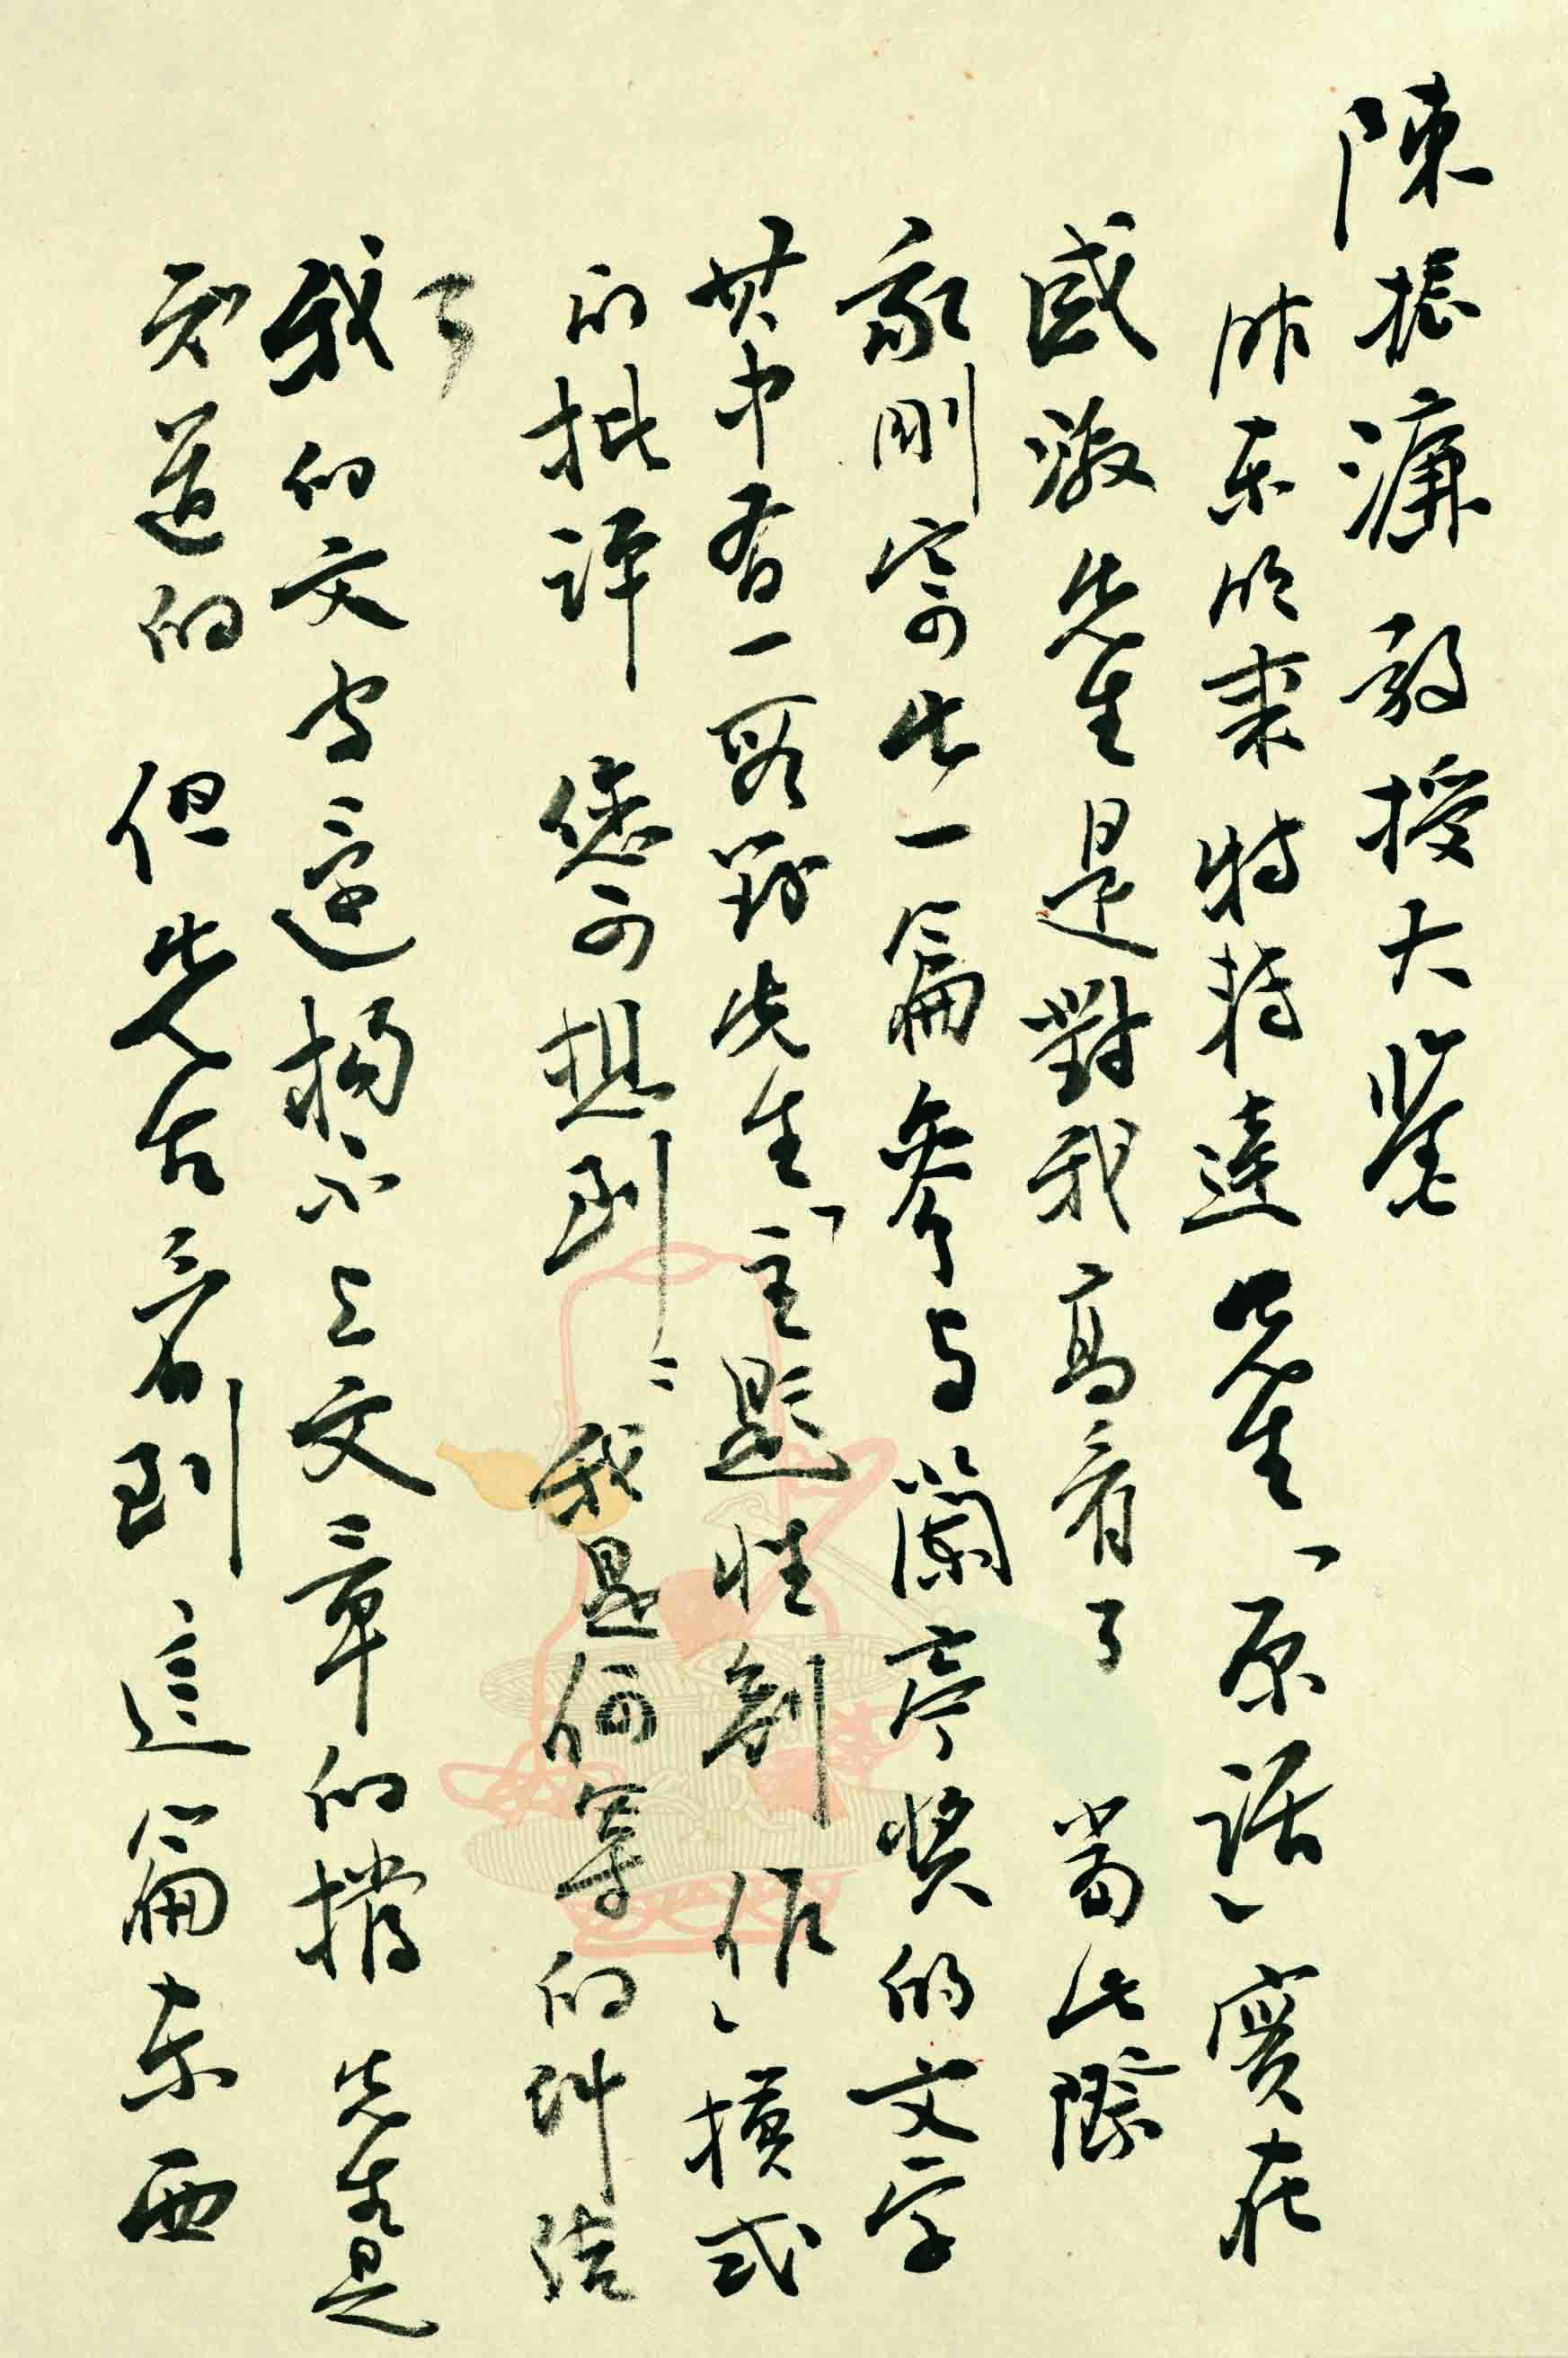 陳振濂教授大鑒
昨東明來特轉達先生「原話」實在
感激先生是對我高看了 當此際
我剛寄出一篇參与蘭亭奖的文字
其中有一段對先生「主題性創作」模式
的批評 您可想到：我是何等的糾结
了
我的文字邊揚不上文章的檔 先生是
知道的 但先生若看到這篇东西